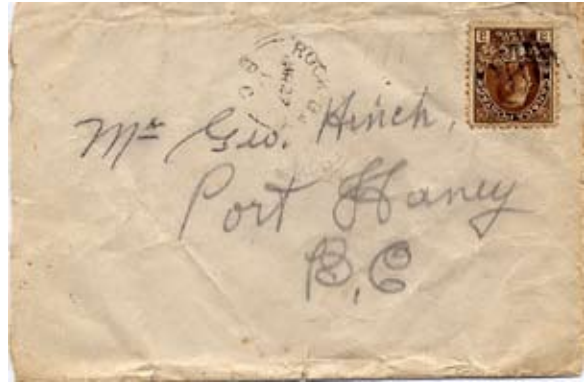 ROCK
Mr Geo. Hinch,
Port Haney
B,C